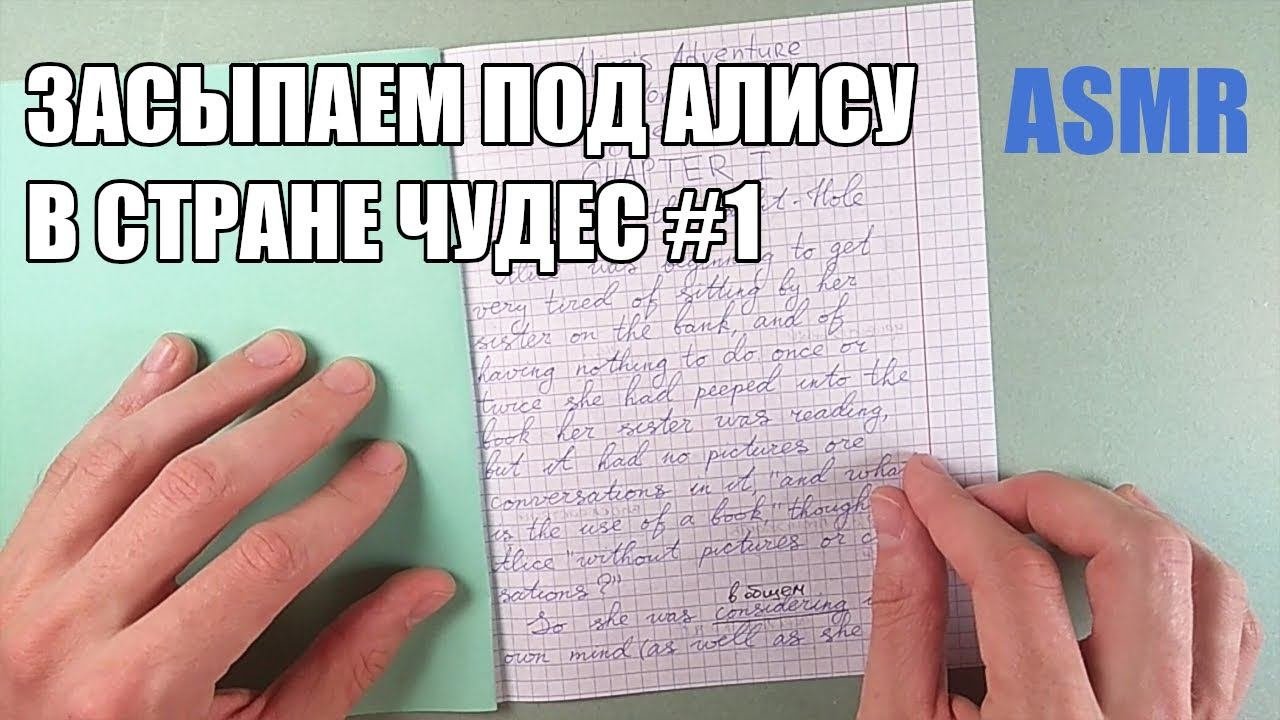 ЗАСЫПАЕМ ПОД АЛИСУ
В СТРАНЕ ЧУДЕС #1
ASMR
Adventure
CHAPTER I
Hole
Alice was beginning to get
very tired of sitting by her
sister on the bank, and of
having nothing to do once or
twice she had peeped into the
book her sister was reading,
but it had no pictures ore
conversations in it, "and what
is the use of a book," though
Alice "without pictures or c
sations?"
в общем
So she was considering
own mind (as well as she